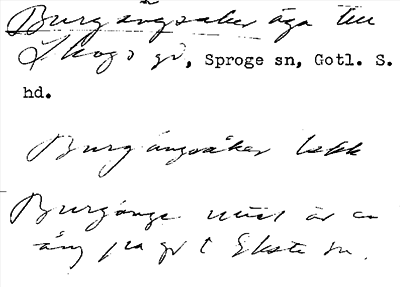 Burgångsåker äga till
Skogs gd, Sproge sn, Gotl. S.
hd.
Burgångsåker
Burgänge är en
äng på gd i Eksta sn.